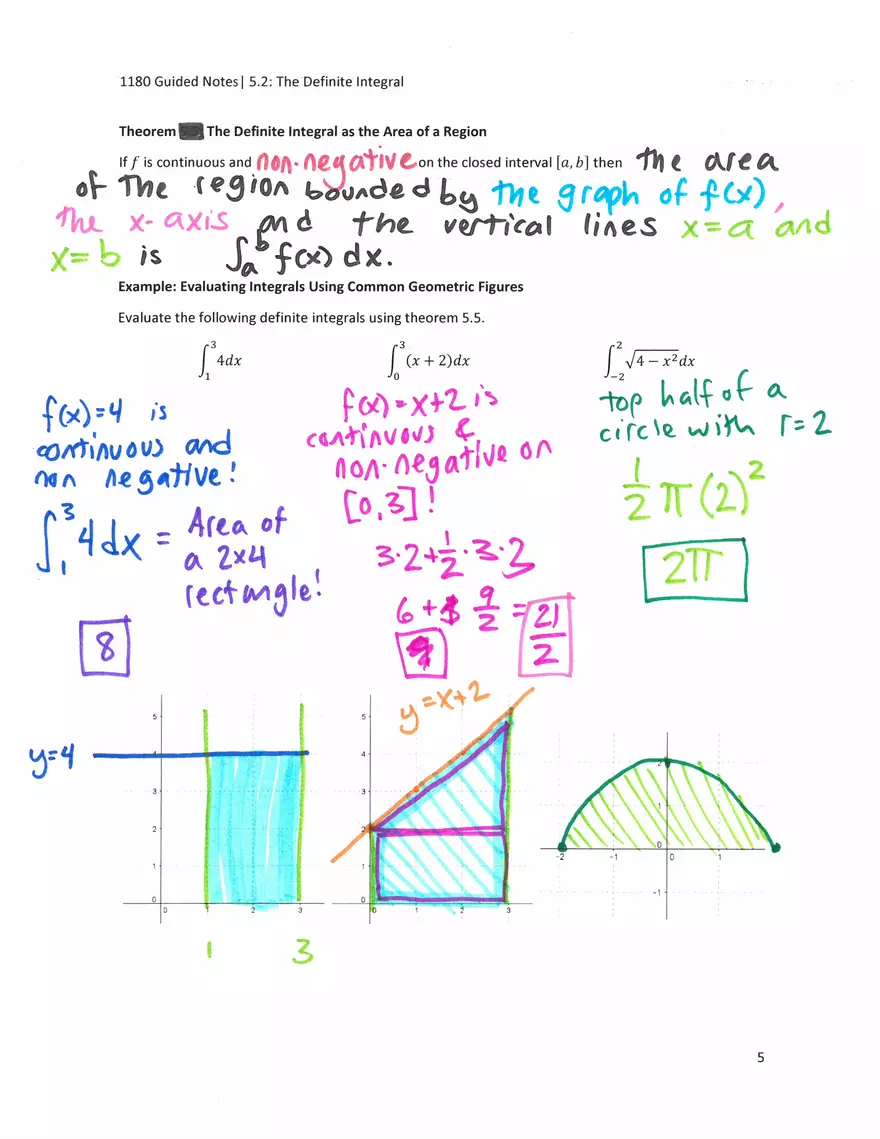 1180 Guided Notes| 5.2: The Definite Integral
Theorem The Definite Integral as the Area of a Region
If f is continuous and non-negative on the closed interval [a, b] then the area
of the region bounded by the graph of f(x),
the x-axis and the vertical lines x=a and
x=b is ∫_a^b f(x) dx.
Example: Evaluating Integrals Using Common Geometric Figures
Evaluate the following definite integrals using theorem 5.5.
∫_1^3 4dx
f(x)=4 is
continuous and
non negative!
∫_1^3 4dx = Area of
a 2x4
rectangle!
8
∫_0^3 (x + 2)dx
f(x)=x+2 is
continuous &
non-negative on
[0,3]!
3·2+½·3·3
6+ 9/2 = 21/2
∫_{-2}^2 √(4 − x²)dx
top half of a
circle with r=2
½π(2)²
2π
y=4
5
4
3
2
1
0
0 1 2 3
1 3
y=x+2
5
4
3
2
1
0
0 1 2 3
2
1
0
-2 -1 0 1
-1
5